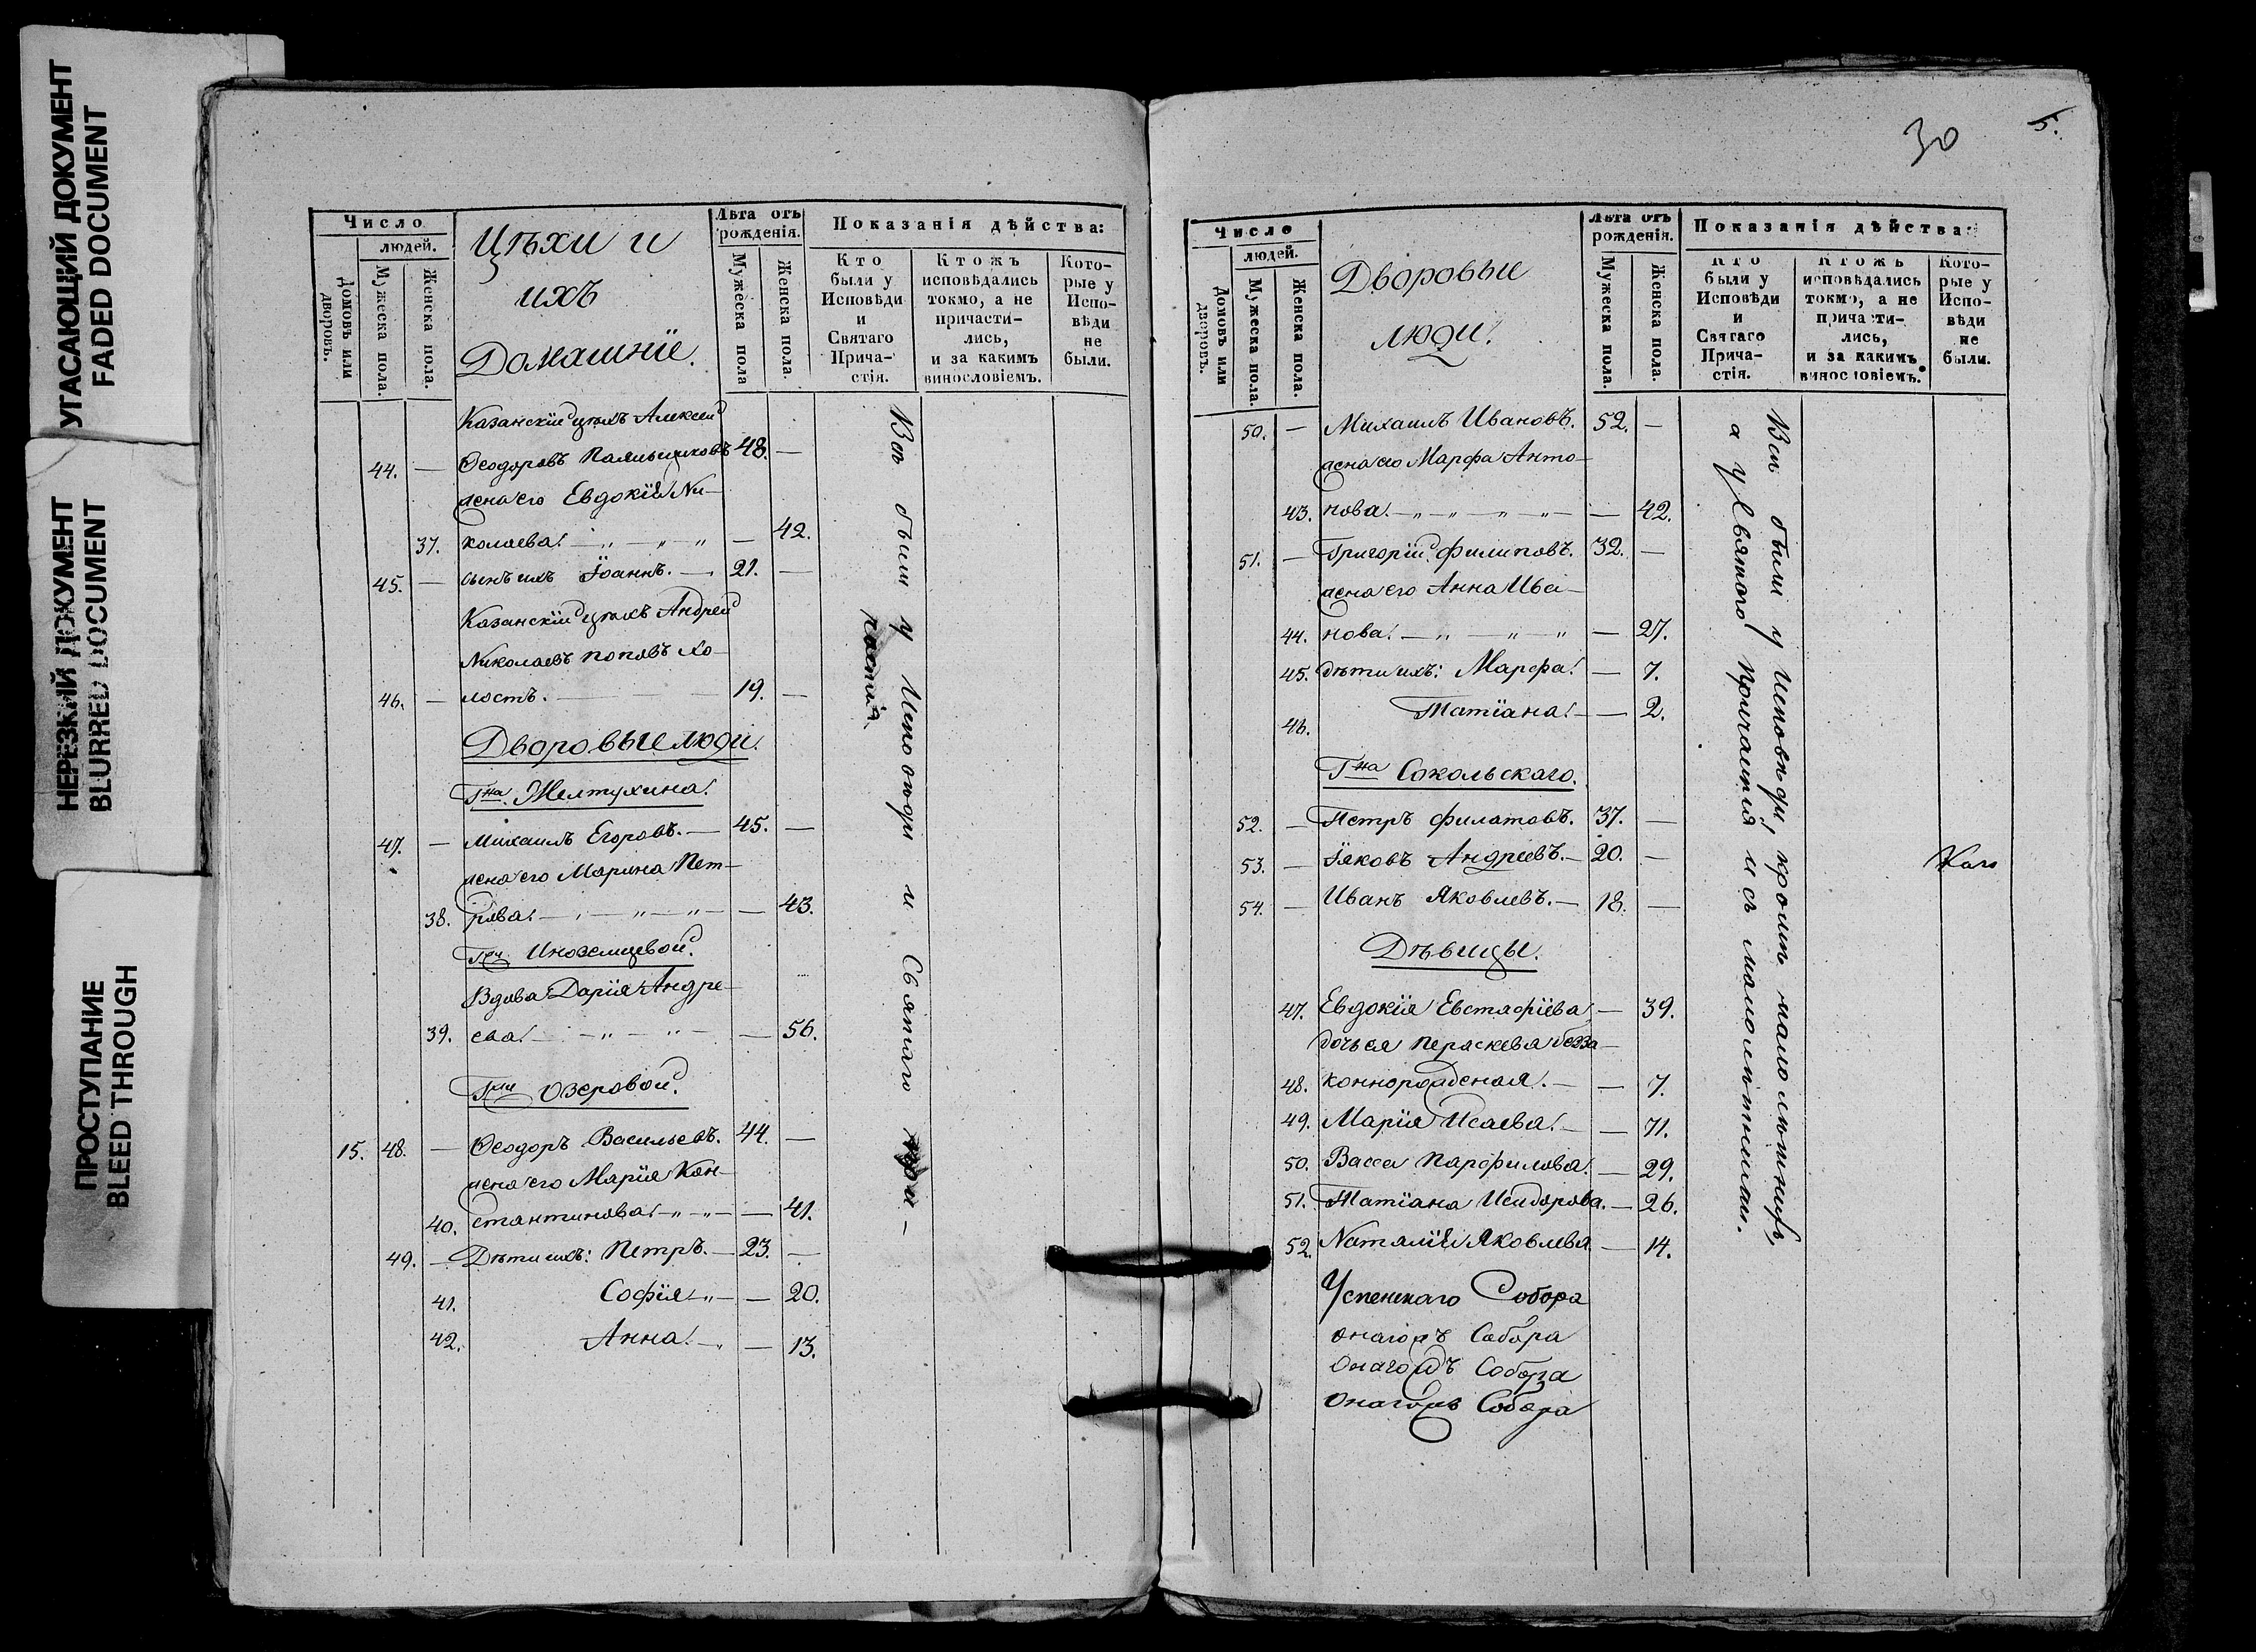 УГАСАЮЩИЙ ДОКУМЕНТ
FADED DOCUMENT
НЕРЕЗКИЙ ДОКУМЕНТ
BLURRED DOCUMENT
ПРОСТУПАНИЕ
BLEED THROUGH
Число
людей.
Домовъ или дворовъ.
Мужеска пола.
Женска пола.
Цѣхи и
ихъ
Домашніе.
Лѣта отъ рожденія.
Мужеска пола
Женска пола.
Показанія дѣйства:
Кто были у Исповѣди и Святаго Прича-стія.
Ктожъ исповѣдались токмо, а не причасти-лись, и за какимъ винословіемъ.
Кото-рые у Испо-вѣди не были.
Казанскій цѣхъ Алексей
44. — Ѳеодоровъ Паяльщиковъ 48. —
жена его Евдокія Ни-
37. колаева. — 42.
45. — сынъ ихъ Іоаннъ. — 21. —
Казанскій цѣхъ Андрей
Николаевъ Поповъ Хо-
46. — лостъ. 19. —
Дворовые люди.
Гна Желтухина.
47. — Михаилъ Егоровъ. — 45. —
жена его Марина Пет-
38. рова. — 43.
Гжи Иноземцевой.
Вдова Дарія Андре-
39. ева. — 56.
Гжи Озеровой.
15. 48. — Ѳеодоръ Васильевъ. 44. —
жена его Марія Кон-
40. стантинова. — 41.
49. — Дѣти ихъ: Петръ. — 23. —
41. Софія — 20.
42. Анна. — 13.
Всѣ были у Исповѣди и Святаго При-
частія.
30
5.
Число
людей.
Домовъ или дворовъ.
Мужеска пола.
Женска пола.
Дворовые
люди.
Лѣта отъ рожденія.
Мужеска пола.
Женска пола.
Показанія дѣйства:
Кто были у Исповѣди и Святаго Прича-стія.
Ктожъ исповѣдались токмо, а не причасти-лись, и за какимъ винословіемъ.
Кото-рые у Испо-вѣди не были.
50. — Михаилъ Ивановъ. 52. —
жена его Марфа Анто-
43. нова. — 42.
51. — Григорій Филиповъ. 32. —
жена его Анна Ива-
44. нова. — 27.
45. дѣти ихъ: Марфа. — 7.
46. Татіана. — 2.
Гна Сокольскаго.
52. — Петръ Филатовъ. 37. —
53. — Іяковъ Андреевъ. — 20. —
54. — Иванъ Яковлевъ. — 18. —
Дѣвицы.
47. Евдокія Евстафіева — 39.
дочь ея Параскева безза-
48. коннорожденая. — 7.
49. Марія Исаева. — 71.
50. Васса Парфилова. — 29.
51. Татіана Исидорова. — 26.
52. Наталія Яковлева — 14.
Успенскаго Собора
онагожъ Собора
Онагожъ Собора
Онагожъ Собора
Всѣ были у Исповѣди, кромѣ малолѣтнихъ,
а у Святаго причастія и съ малолѣтними.